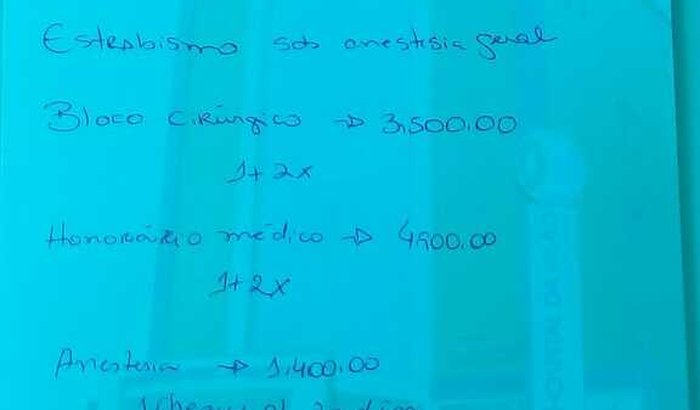 Estrabismo sob anestesia geral
Bloco cirúrgico → 3.500.00
1+2x
Honorário médico → 4900.00
1+2x
Anestesia → 1.400.00